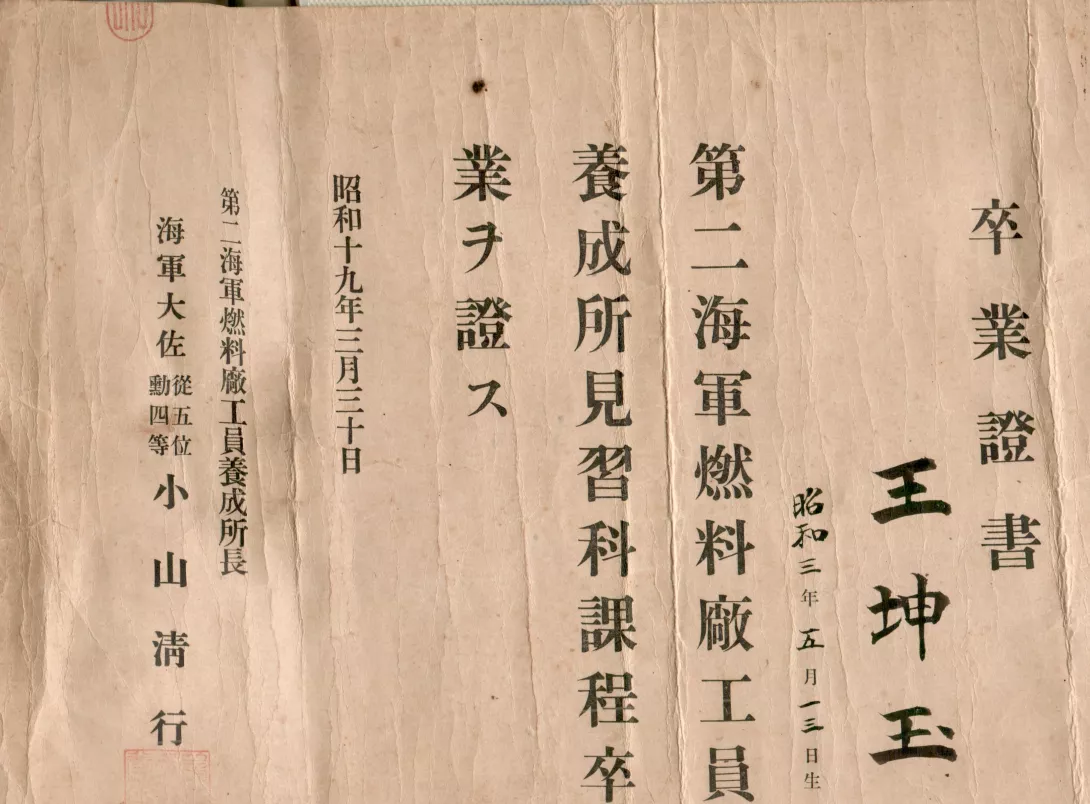 卒業證書
王坤玉
昭和三年五月一三日生
第二海軍燃料廠工員
養成所見習科課程卒
業ヲ證ス
昭和十九年三月三十日
第二海軍燃料廠工員養成所長
海軍大佐從五位勳四等小山淸行